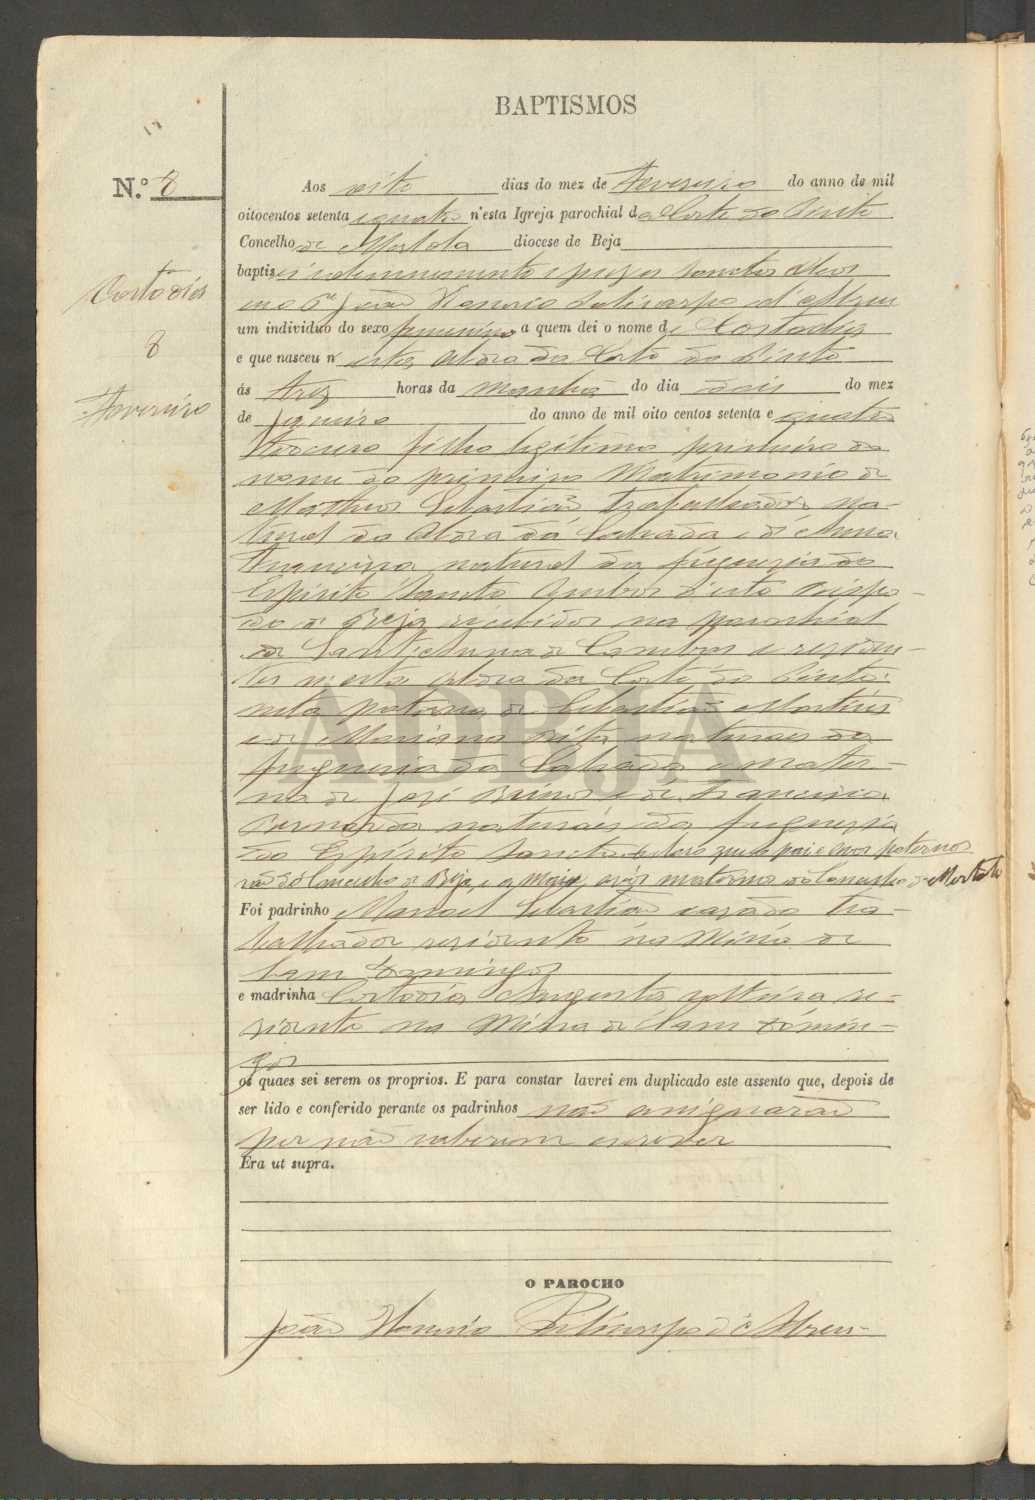 BAPTISMOS
N.º 8
Aos oito dias do mez de Fevereiro do anno de mil
oitocentos setenta e quatro n'esta Igreja parochial da Corte do Pinto
Concelho de Mertola diocese de Beja
baptisei solemnemente e puz os Sanctos Oleos
eu o Pe João Honorio Policarpo d'Abreu
um individuo do sexo femenino a quem dei o nome de Costodia
e que nasceu n'esta Aldea da Corte do Pinto
ás trez horas da manhã do dia dois do mez
de Janeiro do anno de mil oito centos setenta e quatro
filha legitima primeira do
nome do primeiro Matrimonio de
Matheus Sebastião trabalhador na-
tural da Aldea da Salvada e de Anna
Francisca natural da freguezia do
Espirito Sancto ambos d'este Bispa-
do de Beja recebidos na parochial
de Sant'Anna de Cambas e residen-
tes n'esta Aldea da Corte do Pinto:
neta paterna de Sebastião Martins
e de Marianna Rita naturaes da
freguezia da Salvada e mater-
na de José e de Francisca
Bernarda naturaes da freguezia
do Espirito Sancto declaro que o pai e avos paternos
são do Concelho de Beja, e a Mai e avós maternos do Concelho de Mertola
Foi padrinho Manoel Sebastião casado tra-
balhador residente na Mina de
Sam Domingos
e madrinha Costodia Augusta solteira re-
zidente na Mina de Sam Domin-
gos
os quaes sei serem os proprios. E para constar lavrei em duplicado este assento que, depois de
ser lido e conferido perante os padrinhos não assignarão
por não saberem escrever
Era ut supra.
O PAROCHO
João Honorio Policarpo d'Abreu
Costodia
8
Fevereiro
ADBJA